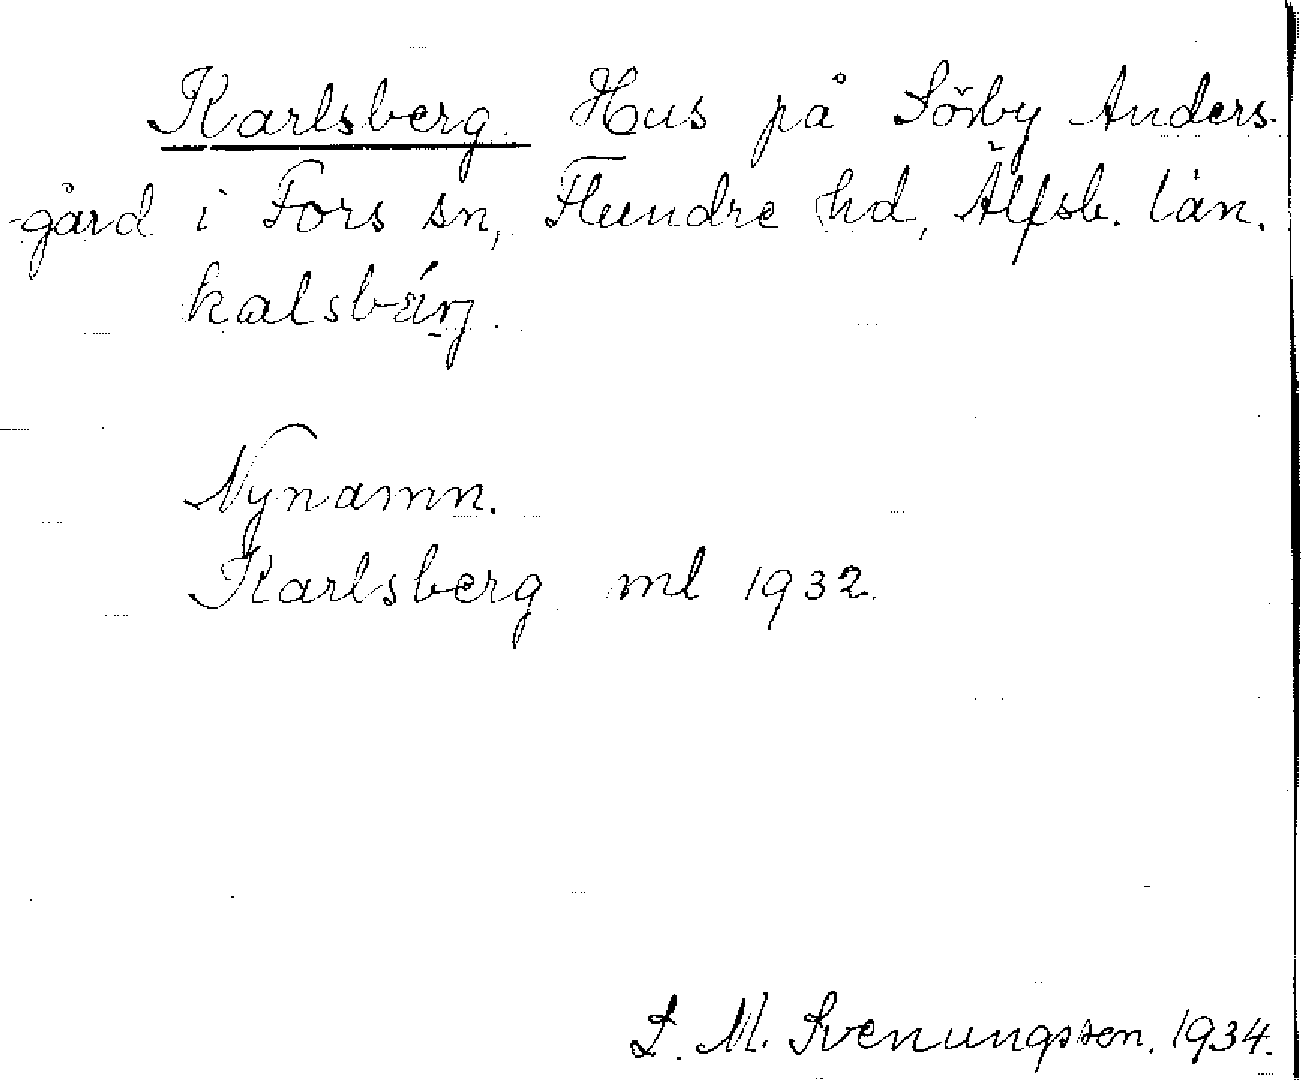 Karlsberg. Hus på Sörby Anders-
gård i Fors sn, Flundre hd, Älfsb. län.
kalsbärj.
Nynamn.
Karlsberg ml 1932.
S. M. Svenungsson. 1934.